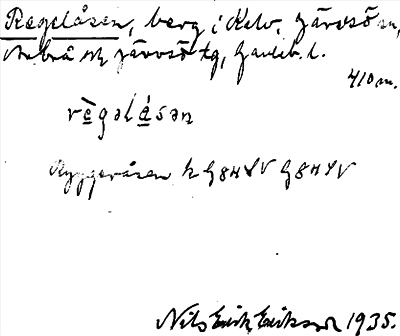 Regelåsen, berg i Kelv, Järvsö sn,
Arbrå och Järvsö tg, Gävleb. l.
410 m.
règəlǻsən
Ryggeråsen k G8H4V G8H4V
Nils Erik Eriksson 1935.